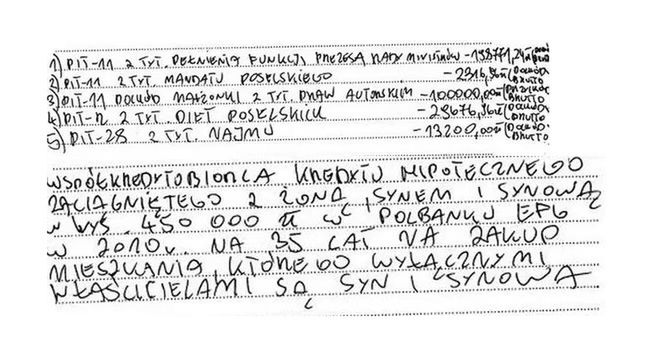 1) PIT-11 Z TYT. PEŁNIENIA FUNKCJI PREZESA RADY MINISTRÓW - 198771,24zł DOCHÓD BRUTTO
2) PIT-11 Z TYT. MANDATU POSELSKIEGO - DOCHÓD BRUTTO
3) PIT-11 DOCHÓD MAŁŻONKI Z TYT. PRAW AUTORSKICH - 100000,00zł BRUTTO
4) PIT-R Z TYT. DIET POSELSKICH - DOCHÓD BRUTTO
5) PIT-28 Z TYT. NAJMU - 13200,00zł DOCHÓD BRUTTO
WSPÓŁKREDYTOBIORCA KREDYTU HIPOTECZNEGO
ZACIĄGNIĘTEGO Z ŻONĄ, SYNEM I SYNOWĄ
W WYS. 450 000 zł W POLBANKU EFG
W 2010r. NA 35 LAT NA ZAKUP
MIESZKANIA, KTÓREGO WYŁĄCZNYMI
WŁAŚCICIELAMI SĄ SYN I SYNOWA